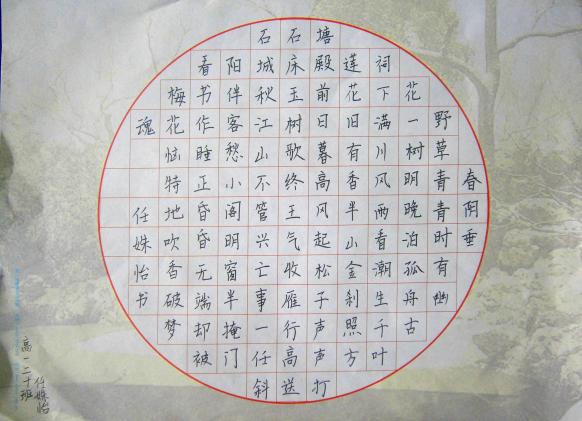 春阴垂
野草青青时有幽
花一树明晚泊孤舟古
祠下满川风雨看潮生千叶
莲花旧有香半山金刹照方
塘殿前日暮高风起松子声声打
石床玉树歌终王气收雁行高送
石城秋江山不管兴亡事一任斜
阳伴客愁小阁明窗半掩门
看书作睡正昏昏无端却被
梅花恼特地吹香破梦
魂 任姝怡书
高一二十班
任姝怡